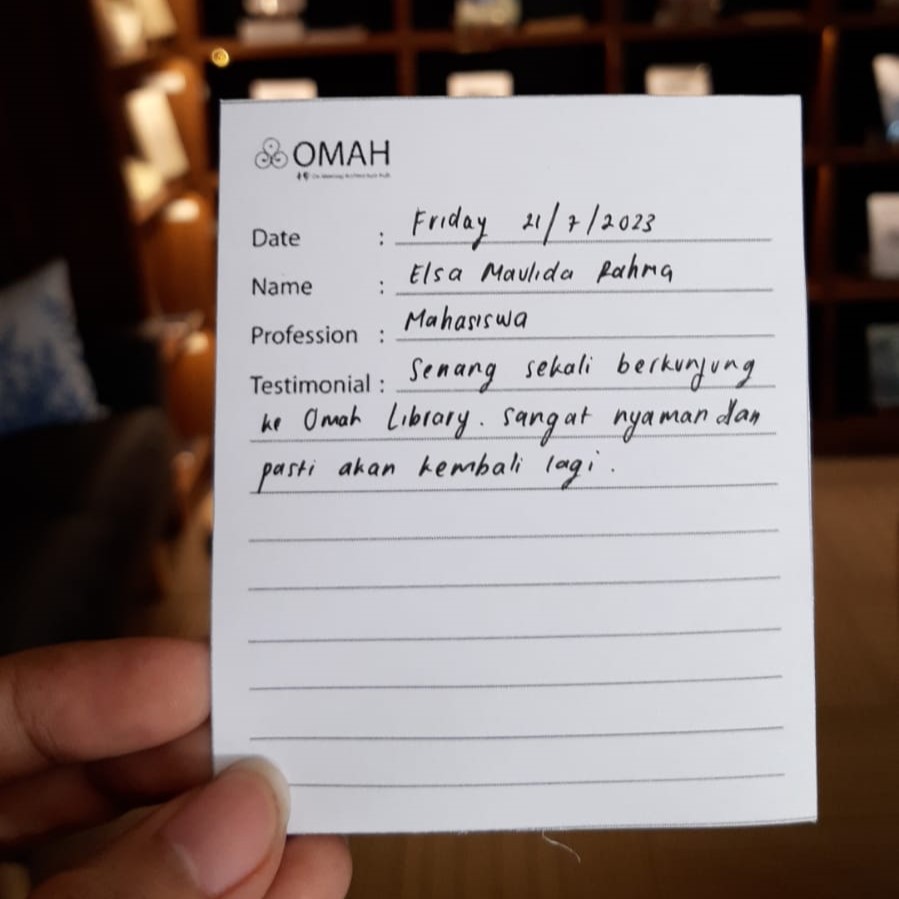 OMAH
Date : Friday 21/7/2023
Name : Elsa Maulida Rahma
Profession : Mahasiswa
Testimonial : Senang sekali berkunjung
ke Omah Library. sangat nyaman dan
pasti akan kembali lagi.